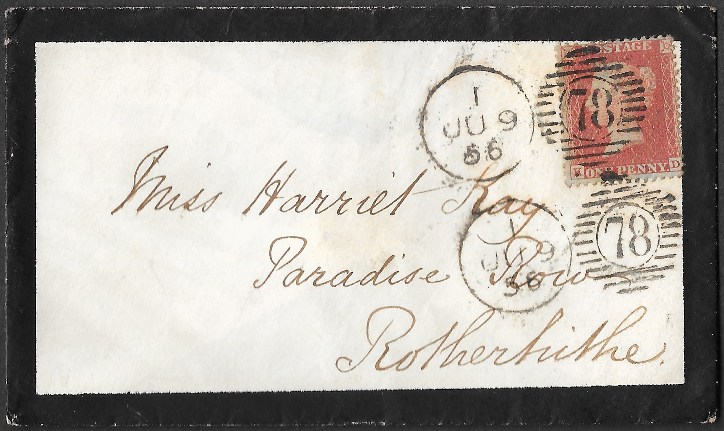 POSTAGE
78
ONE PENNY.
D
1
JU 9
56
78
1
JU 9
56
Miss Harriet Kay
Paradise Row
Rotherhithe.